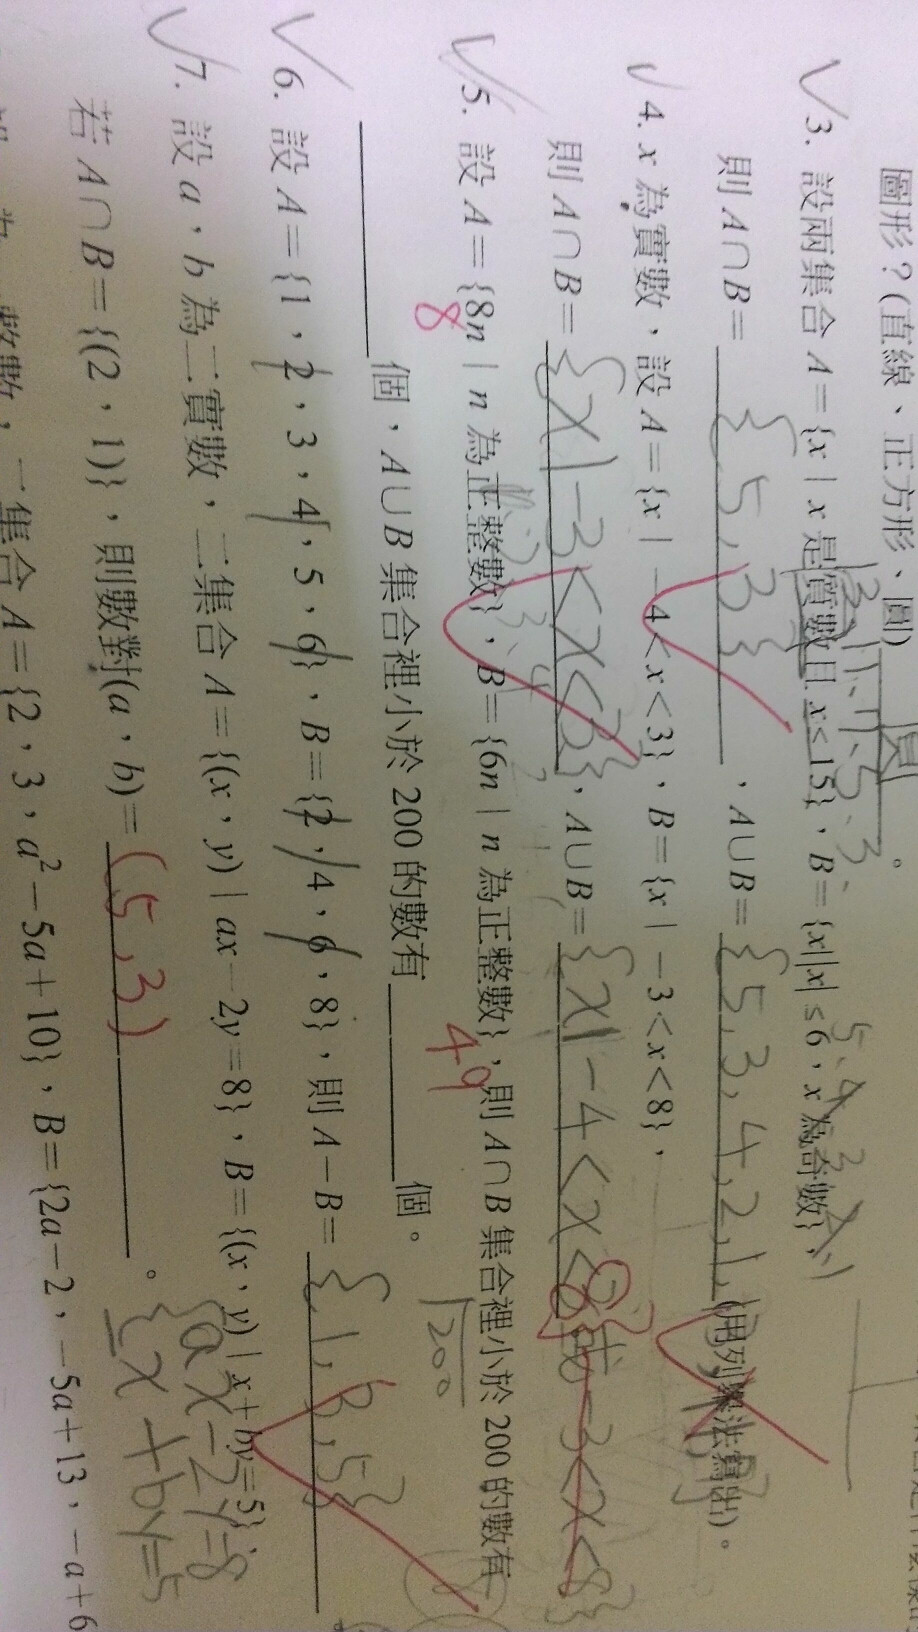 圖形？(直線、正方形、圓) 圓 。
3. 設兩集合 A＝{x | x 是質數且 x≤15}，B＝{x||x|≤6，x 為奇數}，
則 A∩B＝{5,3}，A∪B＝{5,3,4,2,1, (用列舉法寫出)。
4. x 為實數，設 A＝{x | －4＜x＜3}，B＝{x | －3＜x＜8}，
則 A∩B＝{x|-3<x<3}，A∪B＝{x|-4<x<8} 或 -3<x<8}
5. 設 A＝{8n | n 為正整數}，B＝{6n | n 為正整數}，則 A∩B 集合裡小於 200 的數有
8 個，A∪B 集合裡小於 200 的數有 49 個。
200
6. 設 A＝{1，2，3，4，5，6}，B＝{2，4，6，8}，則 A－B＝{1,3,5}
7. 設 a，b 為二實數，二集合 A＝{(x，y) | ax－2y＝8}，B＝{(x，y) | x＋by＝5}，
若 A∩B＝{(2，1)}，則數對(a，b)＝(5,3)。
{ax-2y=8
x+by=5
數，一集合 A＝{2，3，a²－5a＋10}，B＝{2a－2，－5a＋13，－a＋6